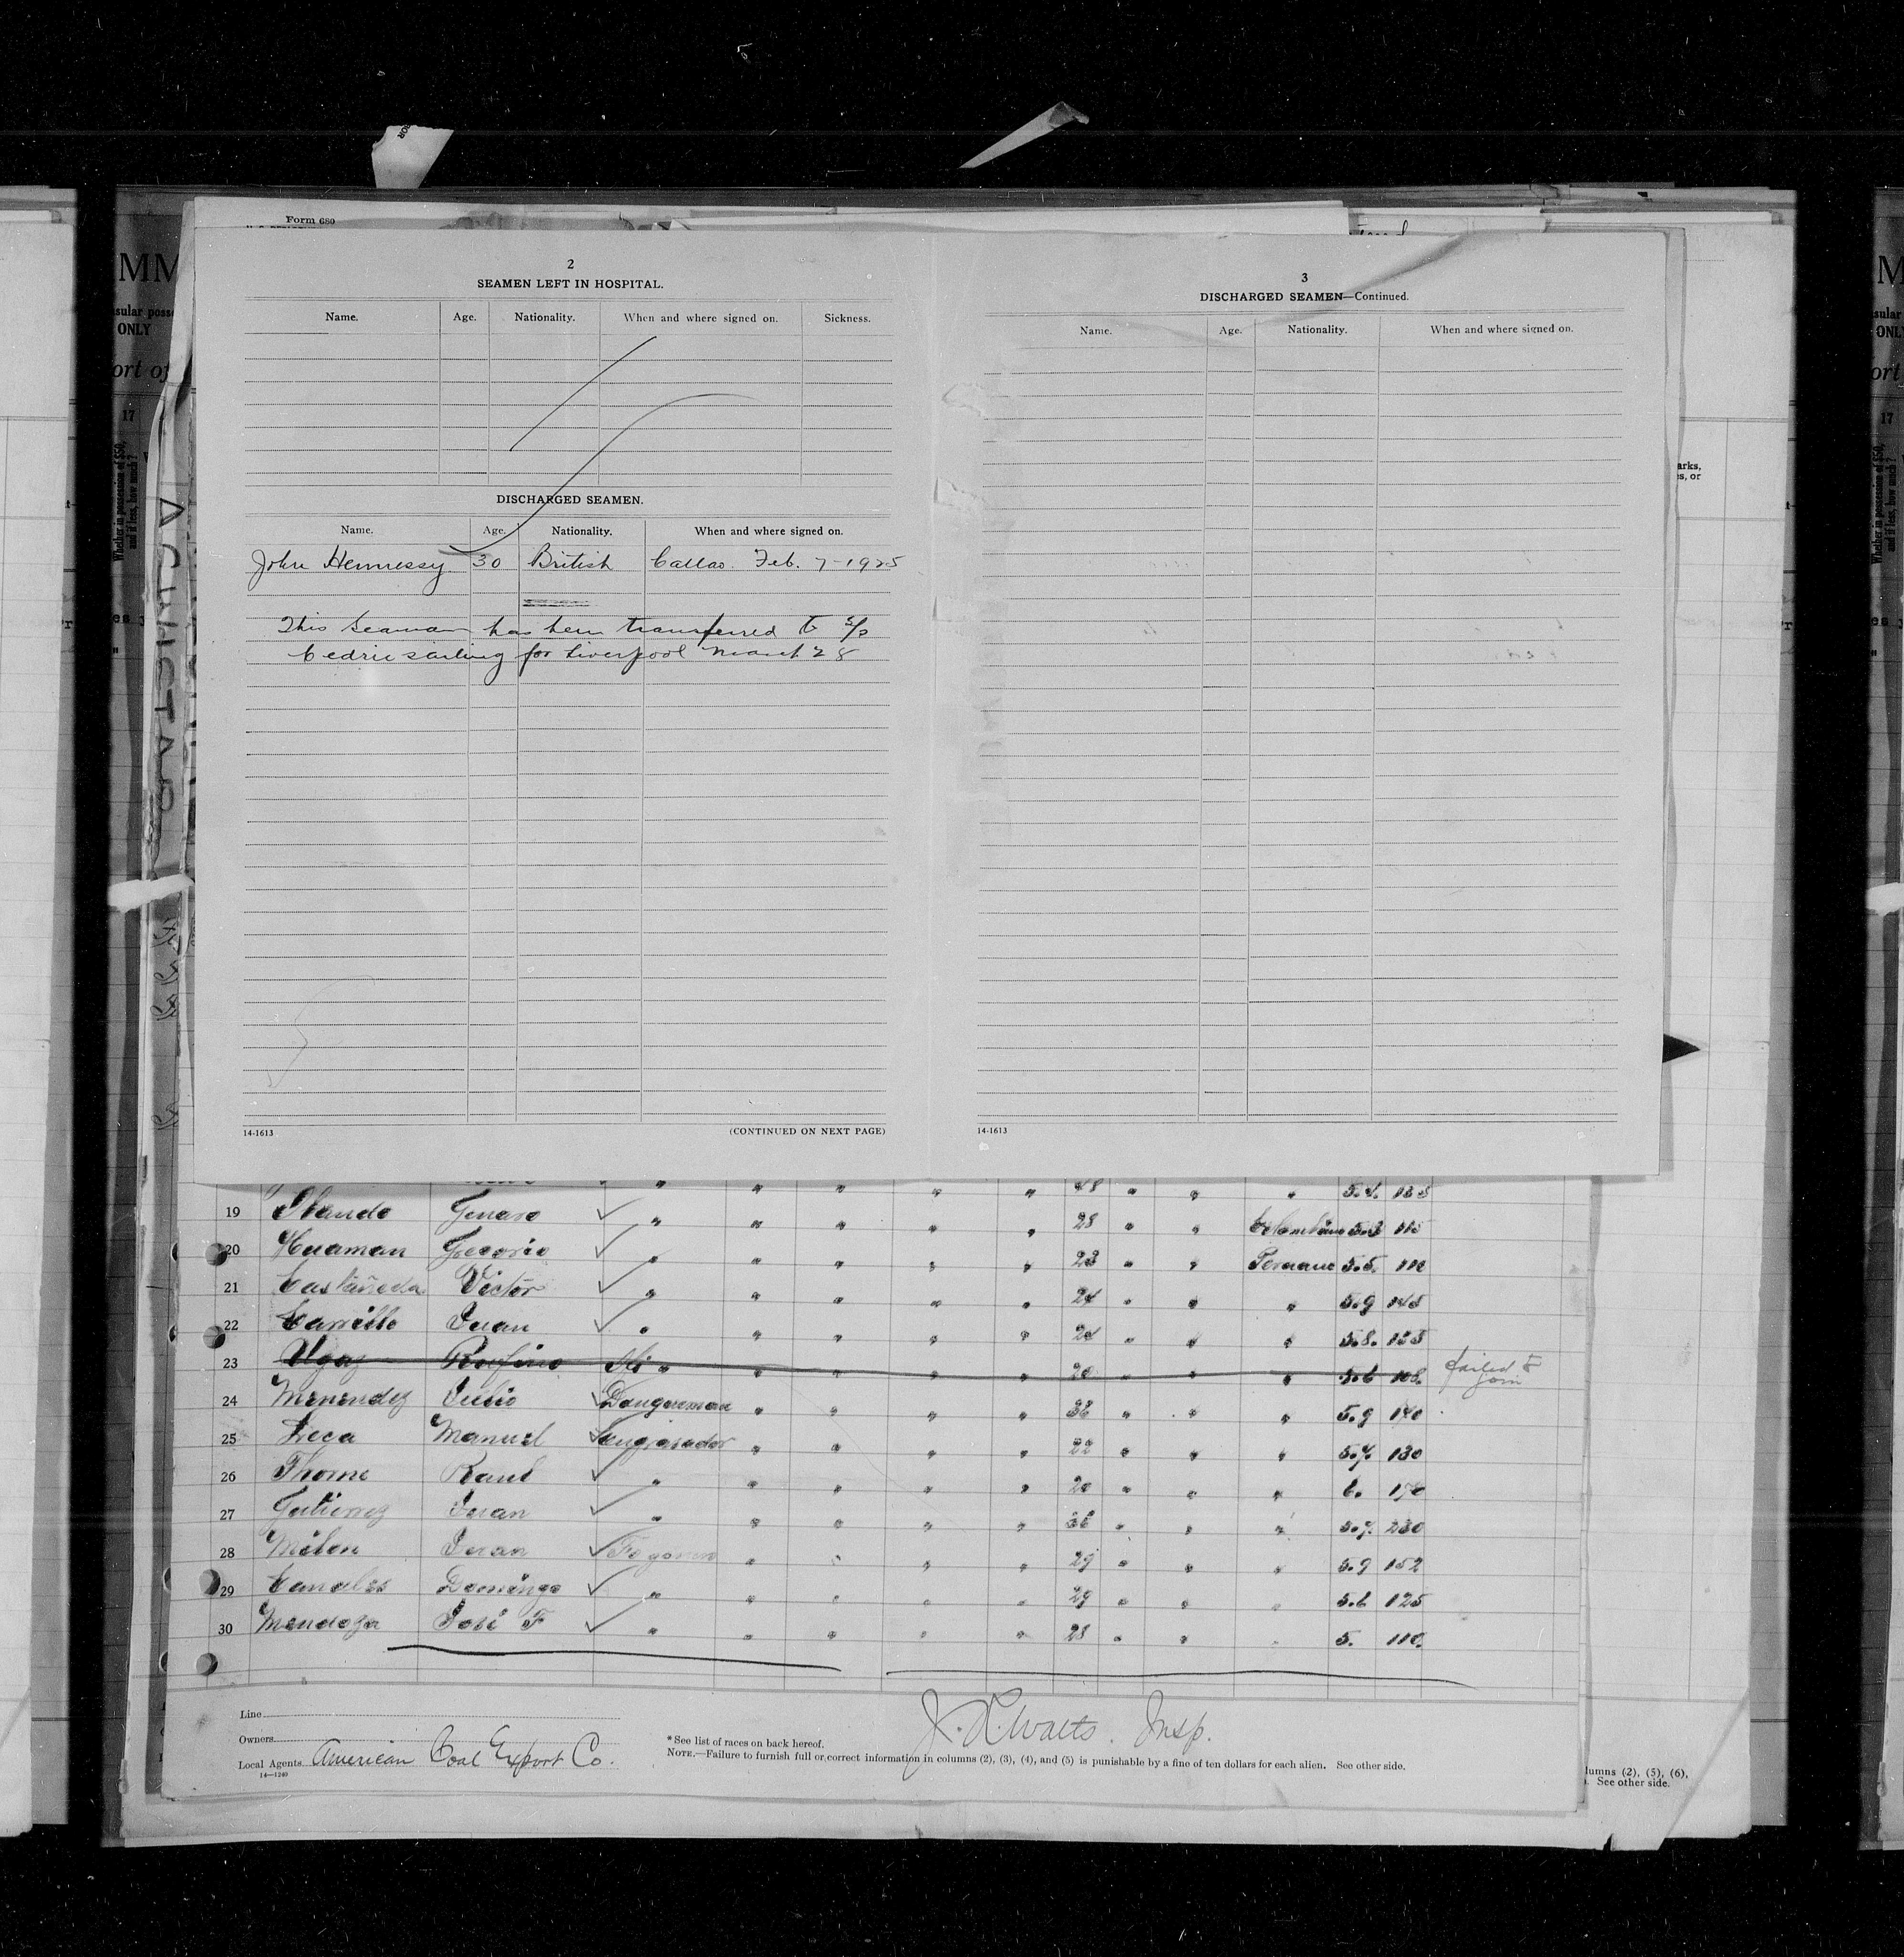 Form 680
2
SEAMEN LEFT IN HOSPITAL.
Name. Age. Nationality. When and where signed on. Sickness.
DISCHARGED SEAMEN.
Name. Age. Nationality. When and where signed on.
John Hennessy 30 British Callao. Feb. 7-1925
This seaman has been transferred to S/S
Cedric sailing for Liverpool March 28
14-1613 (CONTINUED ON NEXT PAGE)
3
DISCHARGED SEAMEN—Continued.
Name. Age. Nationality. When and where signed on.
14-1613
" " " " " 48 " " " 5.4.
19 Genaro ✓ " " " " " 28 " " 5.3 115
20 Huaman Gregorio ✓ " " " " " 23 " " Peruano 5.5. 110
21 Castañeda Victor ✓ " " " " " 24 " " " 5.9 145
22 Carrillo Juan ✓ " " " " " 24 " " " 5.8. 125
23 Ugaz Rufino " " " " " 20 " " " 5.6 108. failed to join
24 Menendez Julio ✓ " " " " 36 " " " 5.9 140
25 Manuel ✓ Engrasador " " " " 22 " " " 5.7. 130
26 Thorne Raul ✓ " " " " " 20 " " " 6. 170
27 Gutierrez Juan ✓ " " " " " 36 " " " 5.7. 230
28 Milon Juan ✓ Fogonero " " " " 29 " " " 5.9 152
29 Canales Domingo ✓ " " " " " 29 " " " 5.6 125
30 Mendoza José F ✓ " " " " " 28 " " " 5. 110.
Line
Owners
Local Agents American Coal Export Co.
14—1240
J. Watts. Insp.
* See list of races on back hereof.
NOTE.—Failure to furnish full or correct information in columns (2), (3), (4), and (5) is punishable by a fine of ten dollars for each alien. See other side.
lumns (2), (5), (6),
See other side.
MM
ONLY
ort of
17
Whether in possession of $50,
and if less, how much?
arks,
s, or